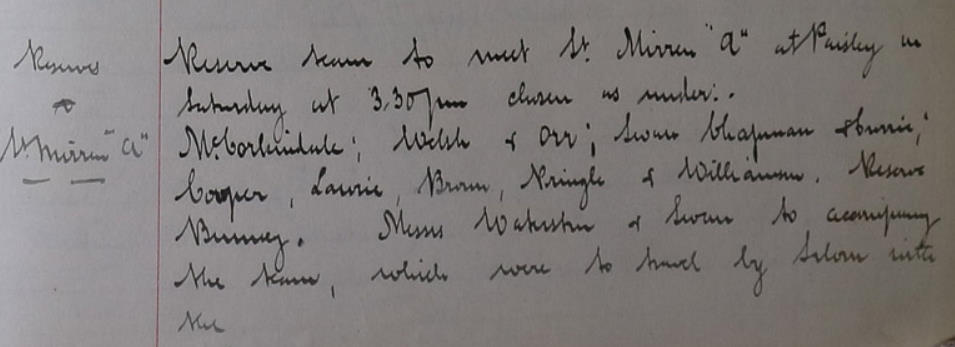 Reserves
v
St. Mirren "A"
Reserve team to meet St. Mirren "A" at Paisley on
Saturday at 3.30 pm chosen as under:-
McCorkindale; Welsh & Orr; Swan Chapman & Currie;
Cooper, Lawrie, Brown, Pringle & Williamson. Reserve
Binney. Messrs Waterston & Swan to accompany
the team, which were to travel by Saloon with
the